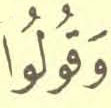 وَقُولُوا